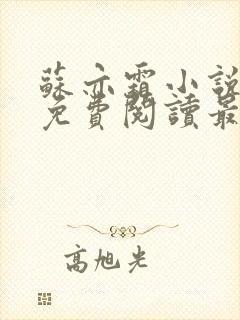 蘇亦霜小說
免費閱讀最
高旭光